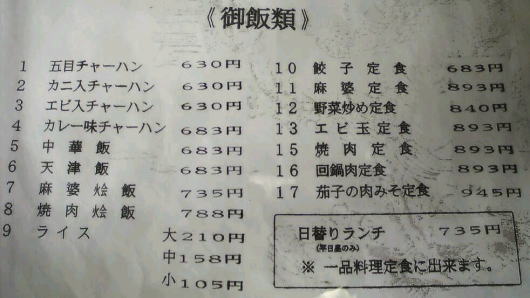 《御飯類》
1 五目チャーハン 630円
2 カニ入チャーハン 630円
3 エビ入チャーハン 630円
4 カレー味チャーハン 683円
5 中華飯 683円
6 天津飯 683円
7 麻婆烩飯 735円
8 焼肉烩飯 788円
9 ライス 大210円
中158円
小105円
10 餃子定食 683円
11 麻婆定食 893円
12 野菜炒め定食 840円
13 エビ玉定食 893円
15 焼肉定食 893円
16 回鍋肉定食 893円
17 茄子の肉みそ定食 945円
日替りランチ 735円
(平日昼のみ)
※ 一品料理定食に出来ます。